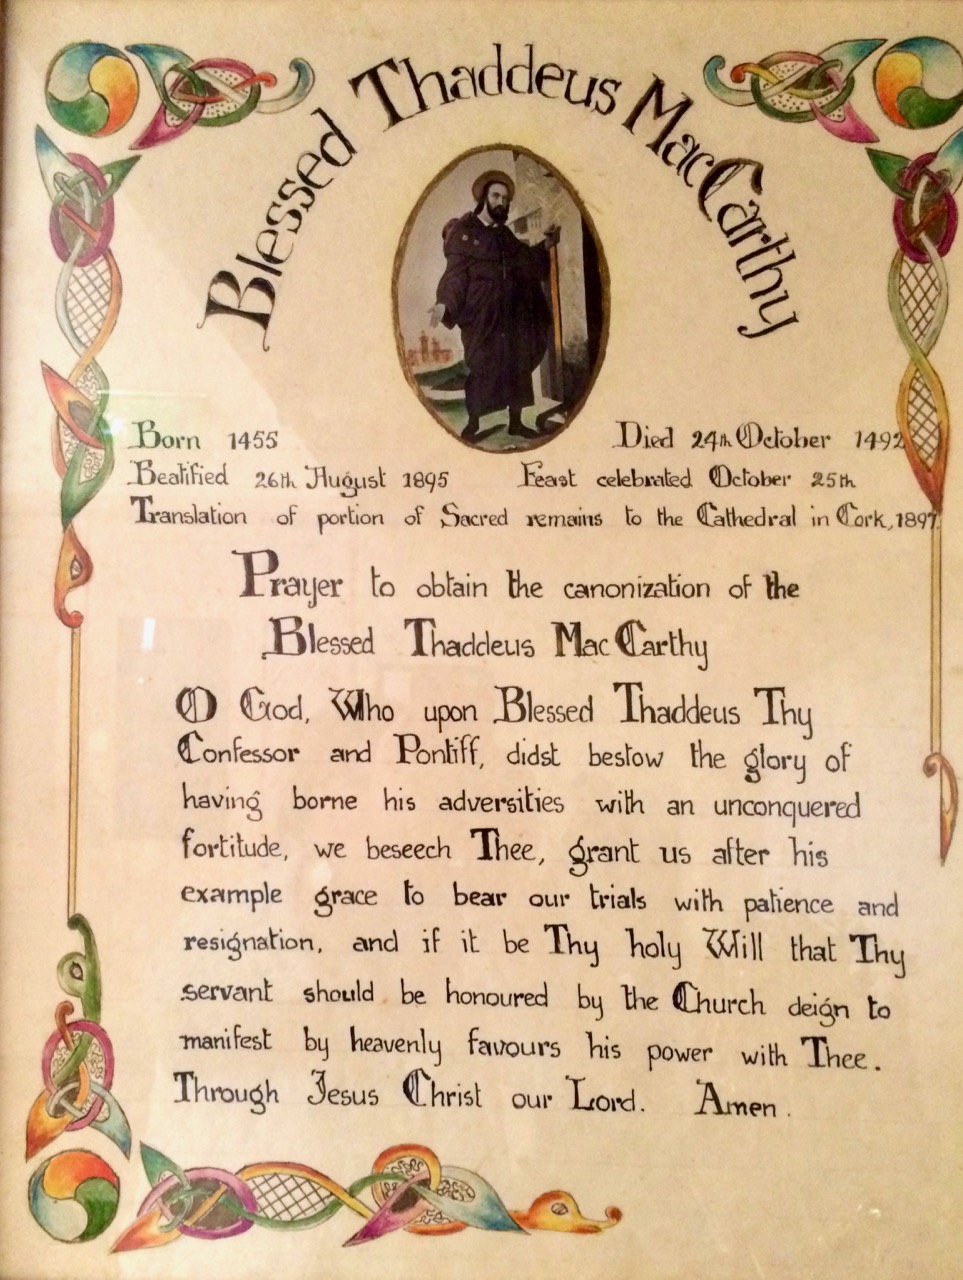 Blessed Thaddeus MacCarthy
Born 1455 Died 24th October 1492
Beatified 26th August 1895 Feast celebrated October 25th
Translation of portion of Sacred remains to the Cathedral in Cork, 1897.
Prayer to obtain the canonization of the
Blessed Thaddeus Mac Carthy
O God, Who upon Blessed Thaddeus Thy
Confessor and Pontiff, didst bestow the glory of
having borne his adversities with an unconquered
fortitude, we beseech Thee, grant us after his
example grace to bear our trials with patience and
resignation, and if it be Thy holy Will that Thy
servant should be honoured by the Church deign to
manifest by heavenly favours his power with Thee.
Through Jesus Christ our Lord. Amen.